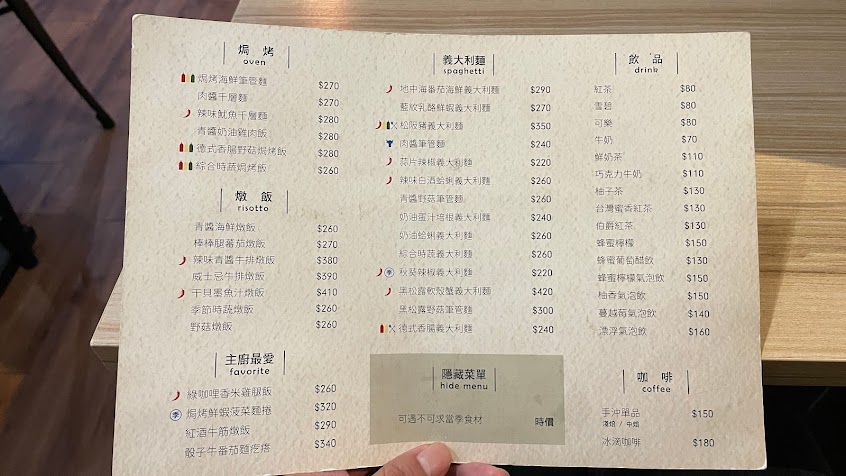 焗 烤
oven
焗烤海鮮筆管麵 $270
肉醬千層麵 $270
辣味魷魚千層麵 $280
青醬奶油雞肉飯 $280
德式香腸野菇焗烤飯 $280
綜合時蔬焗烤飯 $260
燉 飯
risotto
青醬海鮮燉飯 $260
棒棒腿蕃茄燉飯 $270
辣味青醬牛排燉飯 $380
威士忌牛排燉飯 $390
干貝墨魚汁燉飯 $410
季節時蔬燉飯 $260
野菇燉飯 $260
主廚最愛
favorite
綠咖哩香米雞腿飯 $260
季 焗烤鮮蝦菠菜麵捲 $320
紅酒牛筋燉飯 $290
骰子牛番茄麵疙瘩 $340
義大利麵
spaghetti
地中海番茄海鮮義大利麵 $290
藍紋乳酪鮮蝦義大利麵 $270
松阪豬義大利麵 $350
肉醬筆管麵 $240
蒜片辣椒義大利麵 $220
辣味白酒蛤蜊義大利麵 $260
青醬野菇筆管麵 $260
奶油蛋汁培根義大利麵 $240
奶油蛤蜊義大利麵 $260
綜合時蔬義大利麵 $260
季 秋葵辣椒義大利麵 $220
黑松露軟殼蟹義大利麵 $420
黑松露野菇筆管麵 $300
德式香腸義大利麵 $240
隱藏菜單
hide menu
可遇不可求當季食材 時價
飲 品
drink
紅茶 $80
雪碧 $80
可樂 $80
牛奶 $70
鮮奶茶 $110
巧克力牛奶 $110
柚子茶 $130
台灣蜜香紅茶 $130
伯爵紅茶 $130
蜂蜜檸檬 $150
蜂蜜葡萄醋飲 $130
蜂蜜檸檬氣泡飲 $150
柚香氣泡飲 $150
蔓越莓氣泡飲 $140
漂浮氣泡飲 $160
咖 啡
coffee
手沖單品 $150
淺焙 / 中焙
冰滴咖啡 $180